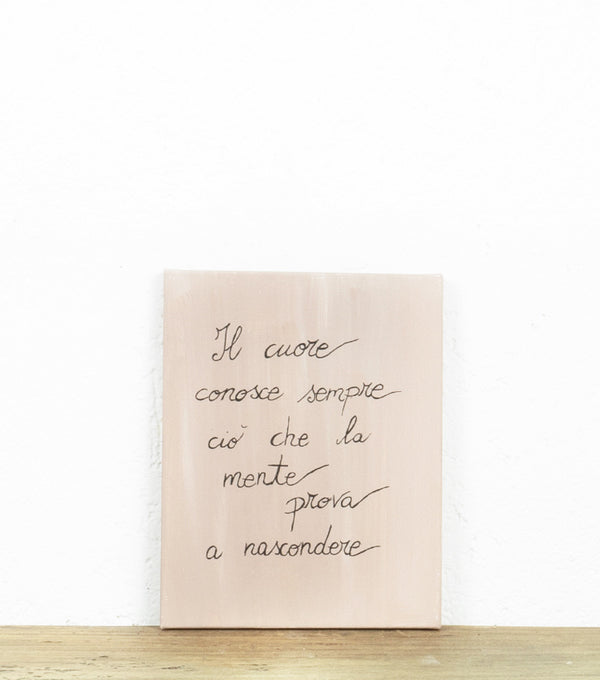 Il cuore
conosce sempre
ciò che la
mente
prova
a nascondere